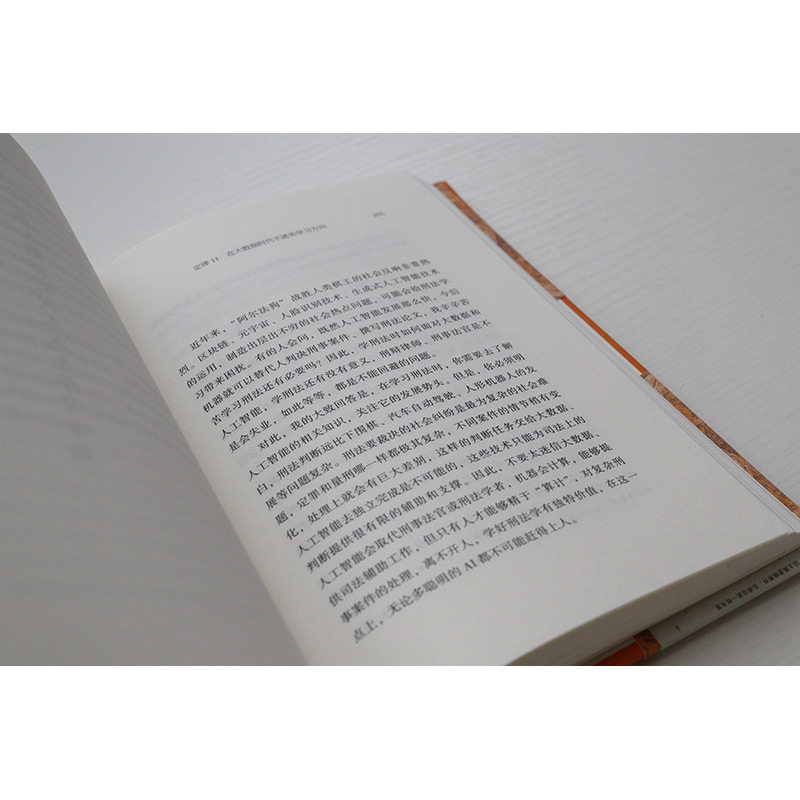 定律 11 在大数据时代不迷失学习方向
近年来，“阿尔法狗”战胜人类棋王的社会反响非常热
烈。区块链、元宇宙、人脸识别技术、生成式人工智能技术
的运用，制造出层出不穷的社会热点问题，可能会给刑法学
习带来困扰。有的人会问，既然人工智能发展那么快，今后
机器就可以替代人判决刑事案件、撰写刑法论文，我辛辛苦
苦学习刑法还有必要吗？因此，学刑法时如何面对大数据和
人工智能，学刑法还有没有意义，刑辩律师、刑事法官是不
是会失业，如此等等，都是不能回避的问题。
对此，我的大致回答是，在学习刑法时，你需要去了解
人工智能的相关知识，关注它的发展势头。但是，你必须明
白，刑法判断远比下围棋、汽车自动驾驶、人形机器人的发
展等问题复杂。刑法要裁决的社会纠纷是最为复杂的社会难
题，定罪和量刑哪一样都极其复杂，不同案件的情节稍有变
化，处理上就会有巨大差别，这样的判断任务交给大数据、
人工智能去独立完成是不可能的，这些技术只能为司法上的
判断提供很有限的辅助和支撑。因此，不要太迷信大数据、
人工智能会取代刑事法官或刑法学者，机器会计算，能够提
供司法辅助工作，但只有人才能够精于“算计”，对复杂刑
事案件的处理，离不开人，学好刑法学有独特价值，在这一
点上，无论多聪明的 AI 都不可能赶得上人。